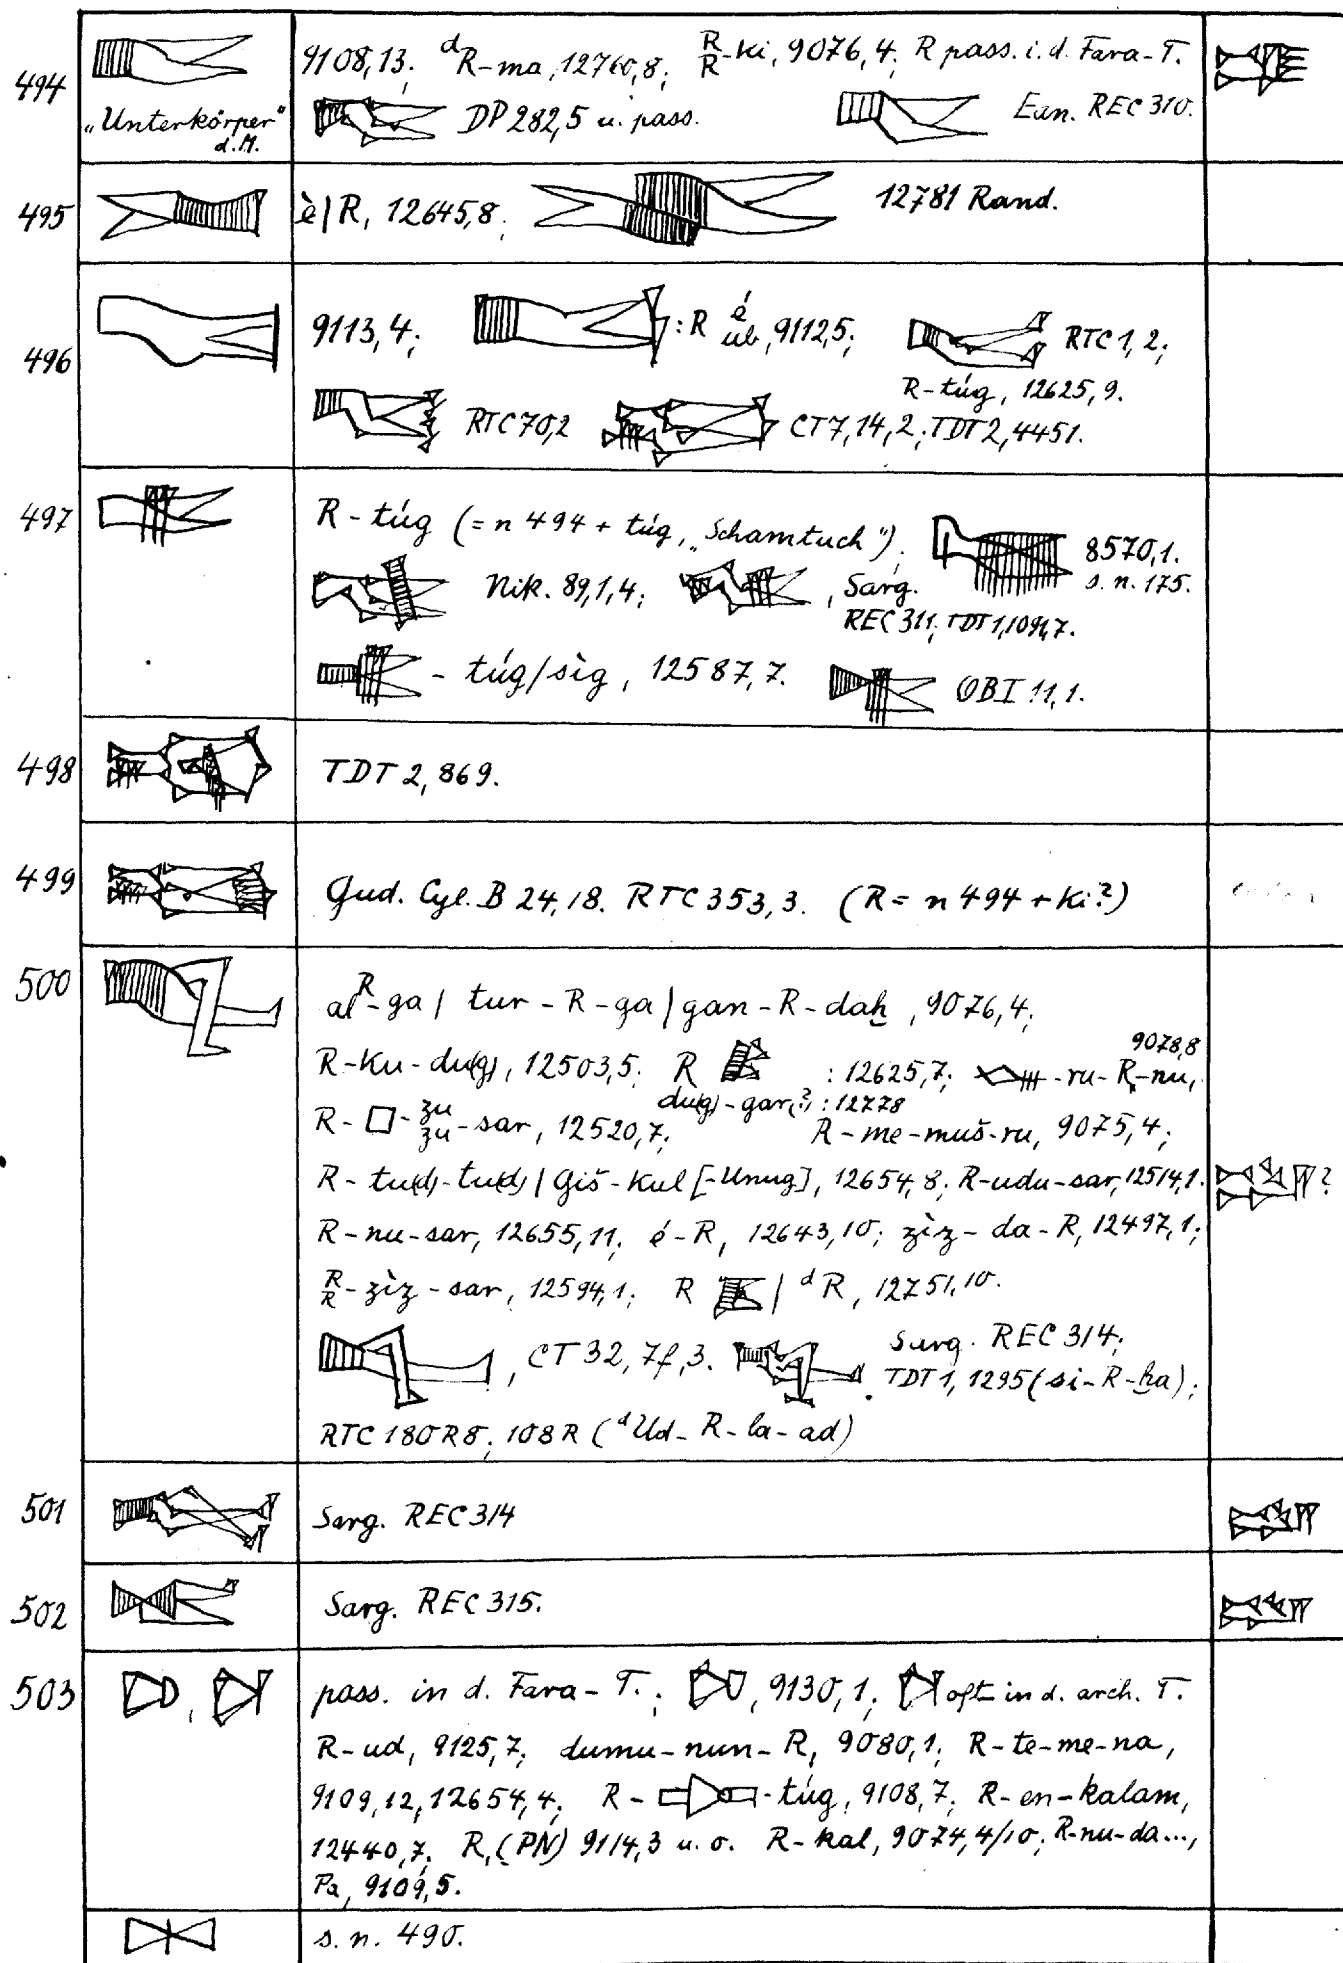 494
„Unterkörper“
d. M.
9108,13. ᵈR-ma, 12760,8; R/R-ki, 9076,4; R pass. i. d. Fara-T.
DP 282,5 u. pass. Ean. REC 310.
495
è|R, 12645,8; 12781 Rand.
496
9113,4; : R é ub, 9112,5; RTC 1,2;
R-túg, 12625,9.
RTC 70,2 CT 7,14,2; TDT 2,4451.
497
R-túg (= n 494 + túg, „Schamtuch“). 8570,1.
s. n. 175.
Nik. 89,1,4; , Sarg.
REC 311; TDT 1,1091,7.
- túg/sìg, 12587,7. OBI 11,1.
498
TDT 2,869.
499
Gud. Cyl. B 24,18. RTC 353,3. (R = n 494 + ki?)
500
al-R-ga | tur-R-ga | gan-R-daḫ, 9076,4;
R-ku-du(g), 12503,5; R : 12625,7; -ru-R-nu, 9078,8
du(g)-gar(?) : 12778
R-□-zu/zu-sar, 12520,7; R-me-muš-ru, 9075,4;
R-tu(d)-tu(d) | Giš-kul [-Unug], 12654,8; R-udu-sar, 12514,1.
?
R-nu-sar, 12655,11; é-R, 12643,10; zìz-da-R, 12497,1;
R/R-zìz-sar, 12594,1; R | ᵈR, 12751,10.
, CT 32,7f,3. Sarg. REC 314;
TDT 1,1295 (si-R-ḫa);
RTC 180 R 8; 108 R (ᵈUd-R-la-ad)
501
Sarg. REC 314
502
Sarg. REC 315.
503
pass. in d. Fara-T.; , 9130,1; oft in d. arch. T.
R-ud, 9125,7; dumu-nun-R, 9080,1; R-te-me-na,
9109,12, 12654,4; R- -túg, 9108,7; R-en-kalam,
12440,7. R, (PN) 9114,3 u. o. R-kal, 9074,4/10; R-nu-da...,
Pa, 9109,5.
s. n. 490.